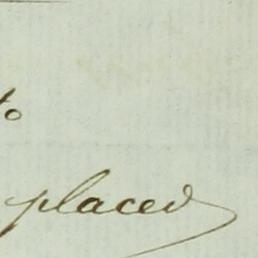 to
placed